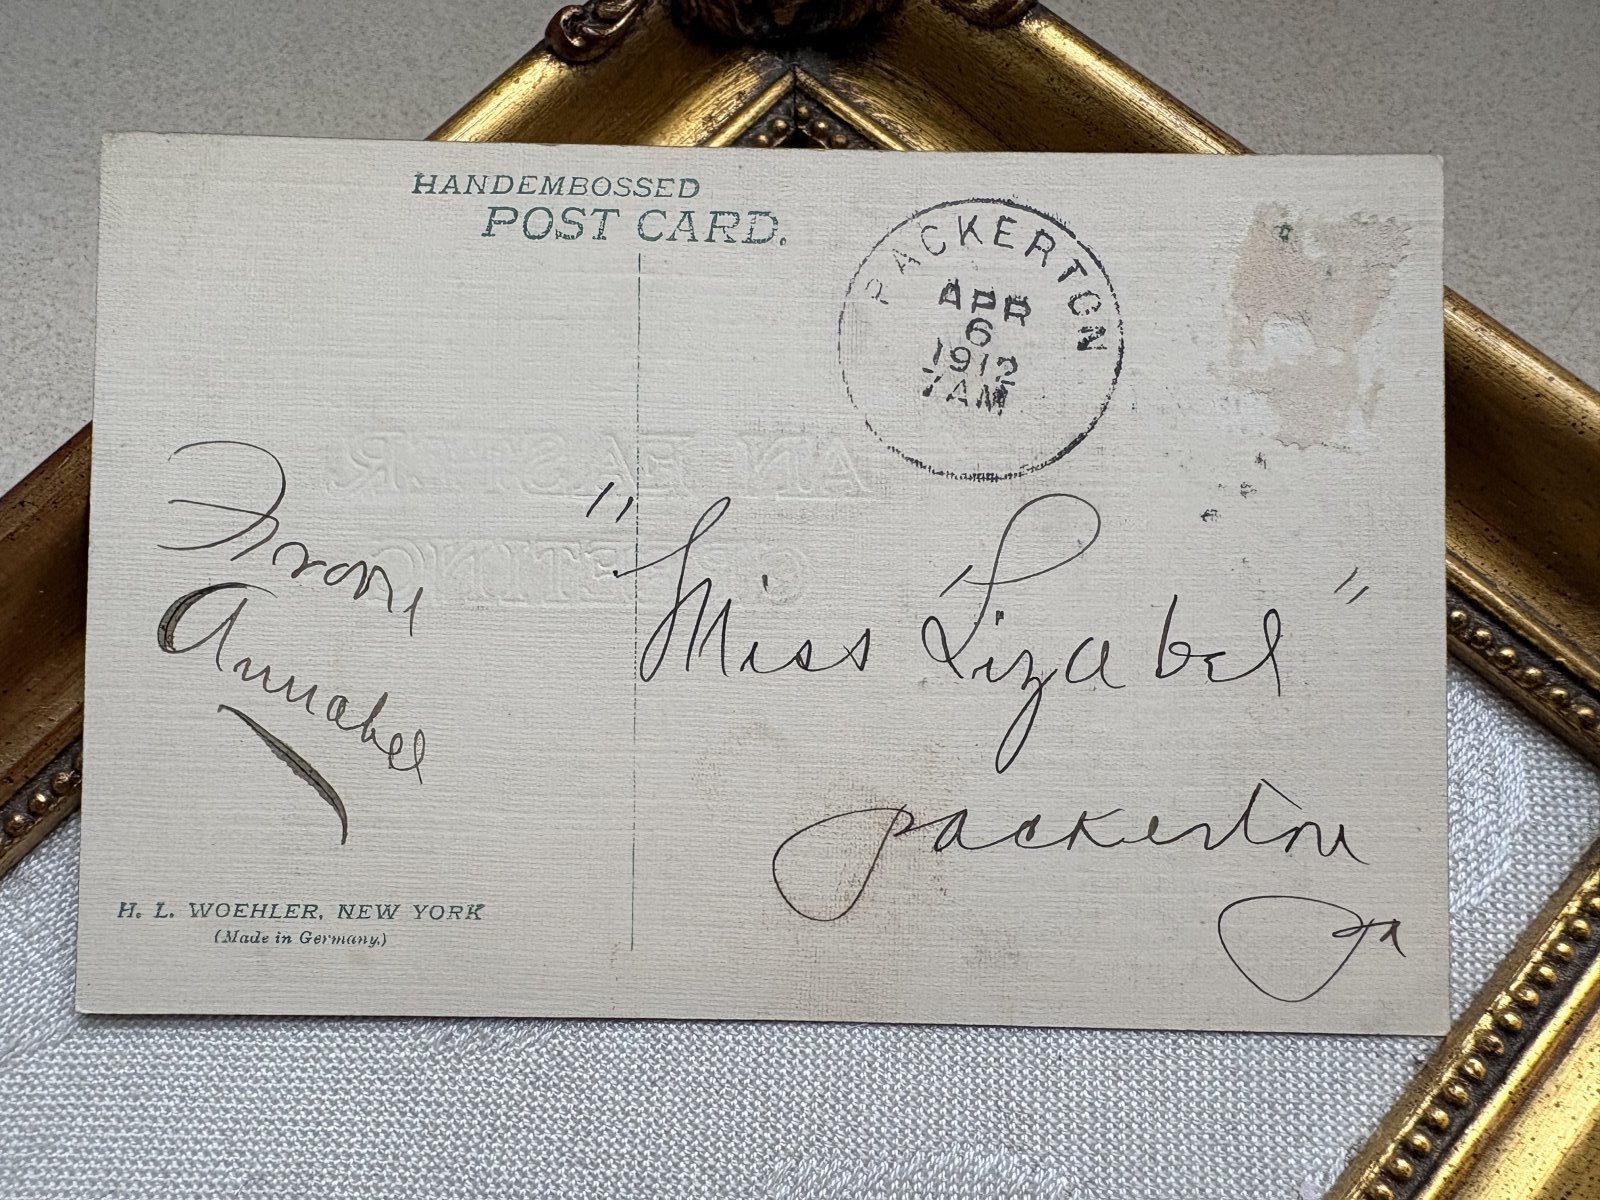 HANDEMBOSSED
POST CARD.
PACKERTON
APR
6
1912
7 AM
AN EASTER
GREETING
From
Annabel
"Miss Lizabel"
Packerton
Pa
H. L. WOEHLER, NEW YORK
(Made in Germany.)